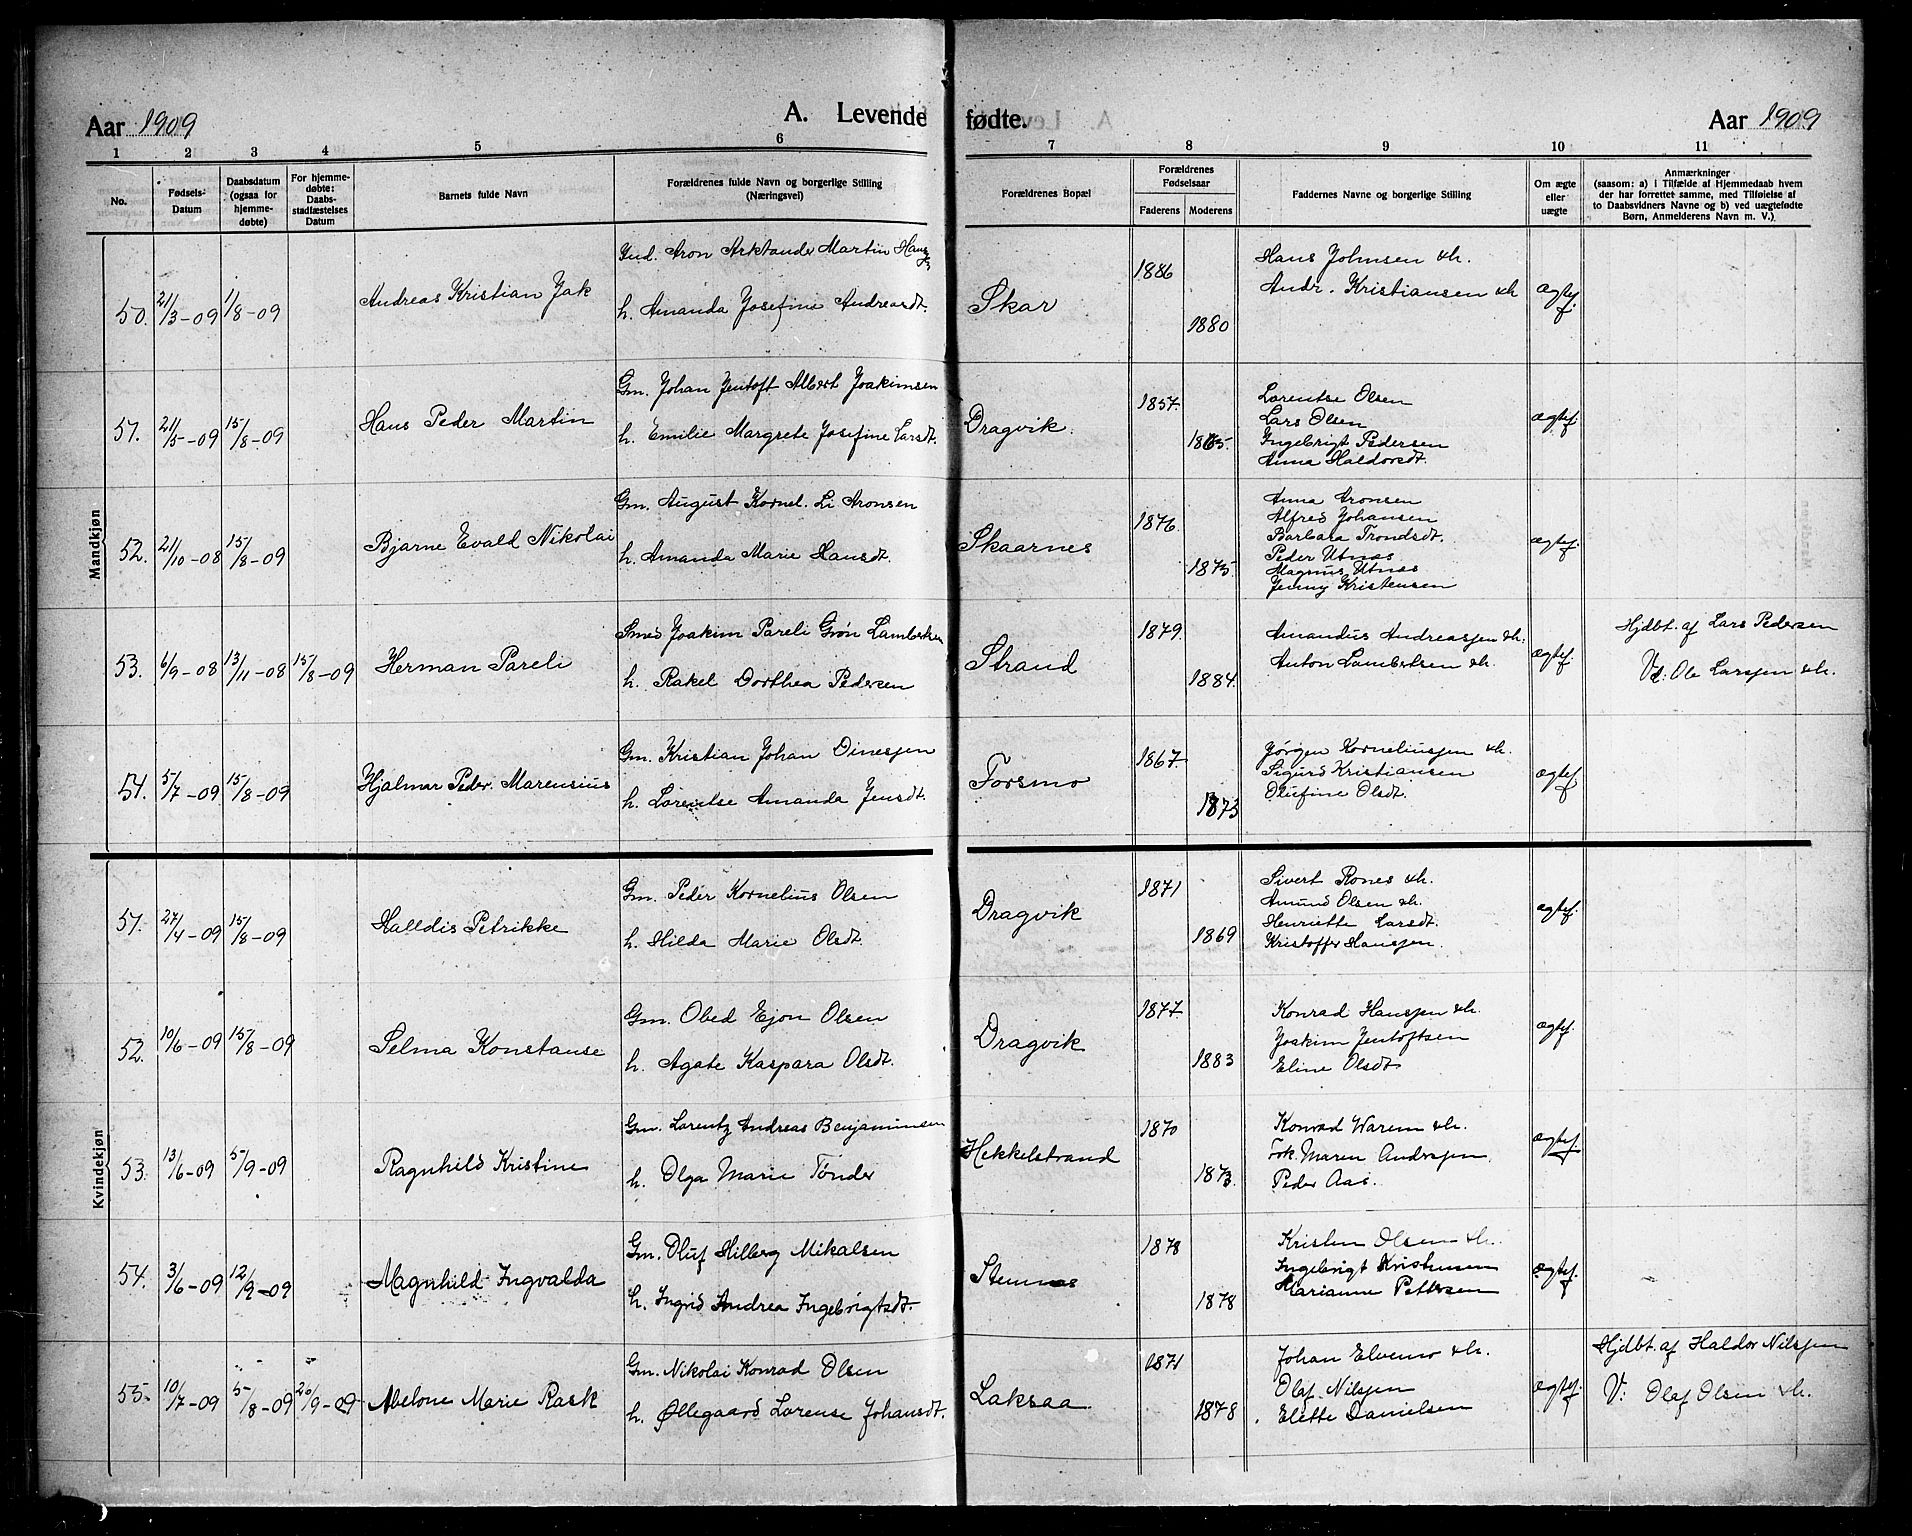 Aar 1909 A. Levende fødte. Aar 1909
1 2 3 4 5 6 7 8 9 10 11
No.
Fødsels-Datum
Daabsdatum (ogsaa for hjemme-døbte)
For hjemme-døbte: Daabs-stadfæstelses Datum
Barnets fulde Navn
Forældrenes fulde Navn og borgerlige Stilling (Næringsvei)
Forældrenes Bopæl
Forældrenes Fødselsaar
Faderens Moderens
Faddernes Navne og borgerlige Stilling
Om ægte eller uægte
Anmærkninger
(saasom: a) i Tilfælde af Hjemmedaab hvem
der har forrettet samme, med Tilføielse af
to Daabsvidners Navne og b) ved uægtefødte
Børn, Anmelderens Navn m. V.)
Mandkjøn
50. 21/3-09 1/8-09 Andreas Kristian Jak
Gud. Aron Arktander Martin
h. Amanda Josefine Andreasdt.
Skar 1886 1880
Hans Johnsen & h.
Andr. Kristiansen & h
ægtef.
51. 21/5-09 15/8-09 Hans Peder Martin
Gm. Johan Jentoft Albert Joakimsen
h. Emilie Margrete Josefine Larsdt.
Dragvik. 1857. 1865.
Lorentse Olsen
Lars Olsen
Ingebrigt Pedersen
Anna Haldorsdt.
ægtef.
52. 21/10-08 15/8-09 Bjarne Evald Nikolai
Gm. August Kornel. Li Aronsen
h. Amanda Marie Hansdt.
Skaarnes 1876. 1875.
Anna Aronsen
Alfred Johansen
Barbara Trondsdt.
Peder Utnæs
Magnus Utnæs
Jenny Kristensen
ægtef.
53. 6/9-08 13/11-08 15/8-09 Herman Pareli
Smed Joakim Pareli Grøn Lambertsen
h. Rakel Dorthea Pedersen
Strand 1879. 1884.
Amandus Andreassen & h.
Anton Lambertsen & h.
ægtef.
Hjdbt. af Lars Pedersen
Vd: Ole Larssen & h.
54. 5/7-09 15/8-09 Hjalmar Peder. Marensius
Gm. Kristian Johan Dinessen
h. Lorentse Amanda Jensdt.
Forsmo 1867. 1873
Jørgen Korneliussen & h.
Sigurd Kristiansen
Olufine Olsdt.
ægtef.
Kvindekjøn
51. 27/4-09 15/8-09 Halldis Petrikke
Gm. Peder Kornelius Olsen
h. Hilda Marie Olsdt.
Dragvik 1871 1869
Sivert Rones & h.
Amund Olsen & h.
Henriette Larsdt.
Kristoffer Hanssen.
ægtef.
52. 10/6-09 15/8-09 Selma Konstanse
Gm. Obed Ejon Olsen
h. Agate Kaspara Olsdt.
Dragvik 1877. 1883
Konrad Hanssen & h.
Joakim Jentoftsen
Eline Olsdt
ægtef.
53. 13/6-09 5/9-09 Ragnhild Kristine
Gm. Lorentz Andreas Benjaminsen
h. Olga Marie Tønder
Hekkelstrand 1870 1873.
Konrad Warem & h.
Frk. Maren Andrsen.
Peder Aas.
ægtef.
54. 3/6-09 12/9-09 Magnhild Ingvalda
Gm. Oluf Hilberg Mikalsen
h. Ingrid Andrea Ingebrigtsdt.
Stennæs 1878 1878
Kristen Olsen & h.
Ingebrigt Kristensen
Marianne Pettersen
ægtef.
55. 10/7-09 5/8-09 26/9-09 Abelone Marie Rask
Gm. Nikolai Konrad Olsen
h. Øllegaard Lorense Johansdt.
Laksaa. 1871 1878.
Johan Elvemo & h.
Olaf Nilssen
Elette Danielsen
ægtef.
Hjdbt. af Haldor Nilssen
V: Olaf Olsen & h.